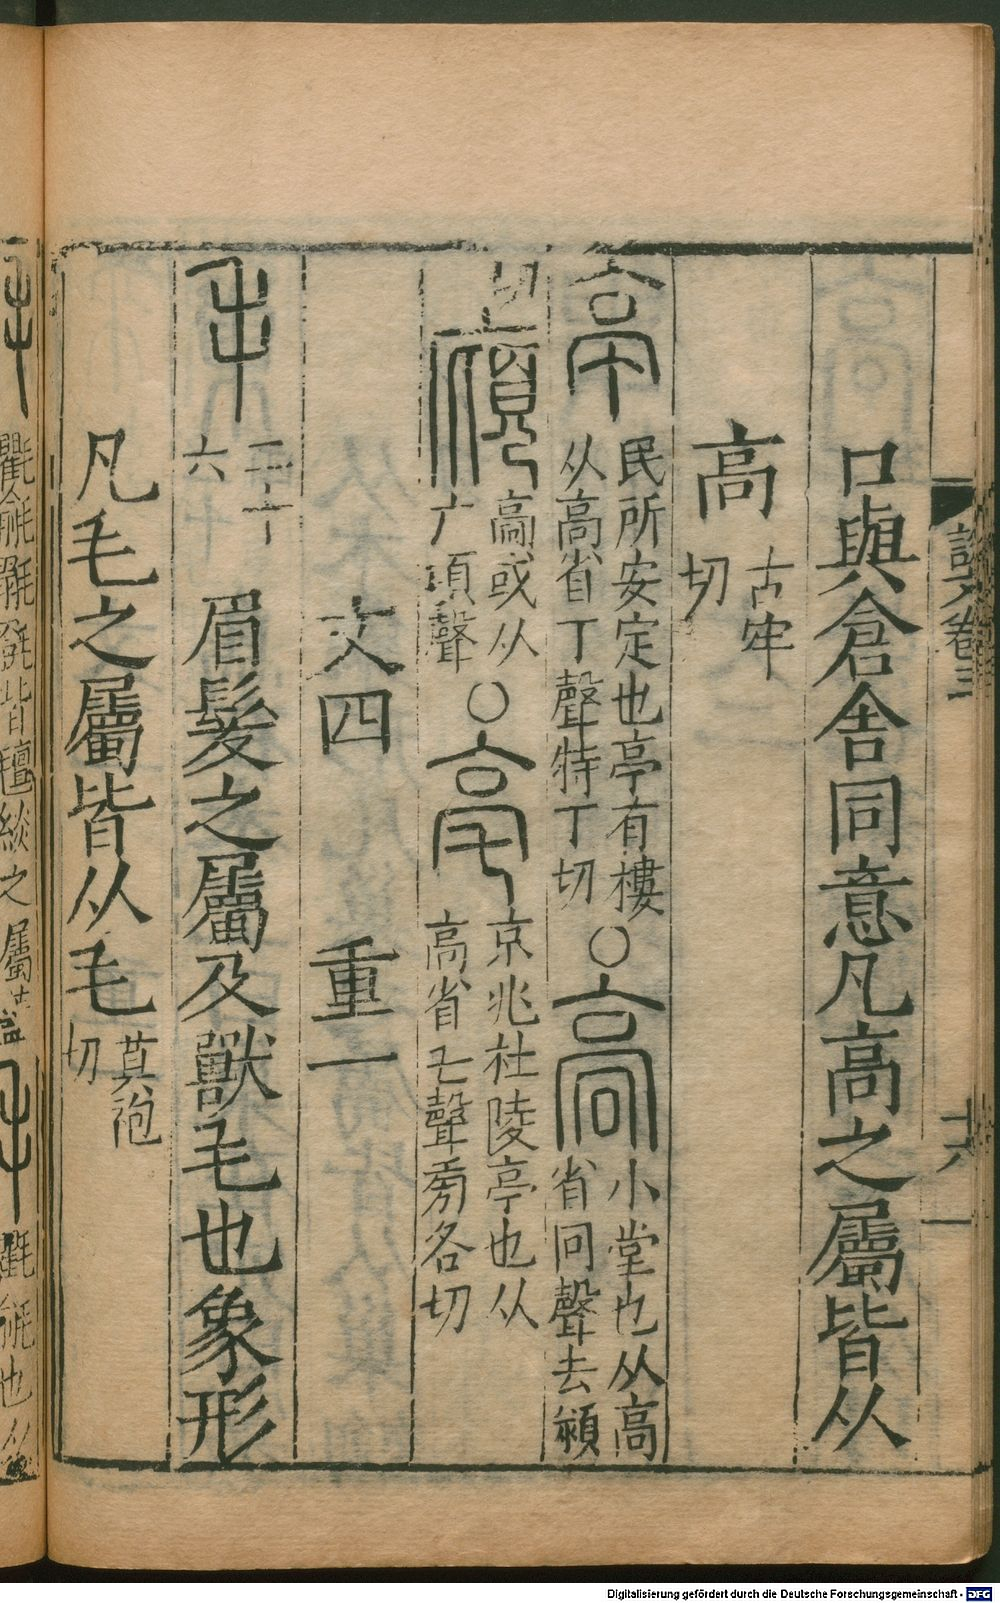 說文卷三
十六
一
口與倉舍同意凡高之屬皆从
高 古牢切
亭 民所安定也亭有樓从高省丁聲特丁切 ○ 高 小堂也从高省冋聲去潁
切 廎 高或从广頃聲 ○ 亳 京兆杜陵亭也从高省乇聲旁各切
文四 重一
毛 二百六十 眉髮之屬及獸毛也象形
凡毛之屬皆从毛 莫袍切
Digitalisierung gefördert durch die Deutsche Forschungsgemeinschaft - DFG